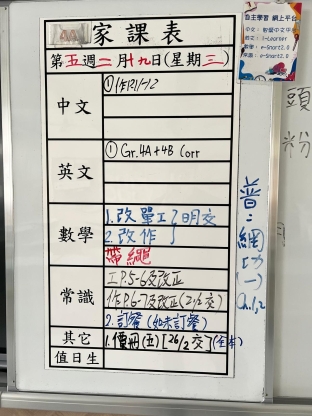 家課表
第五週二月十九日(星期三)
中文
①作R1-12
英文
① Gr.4A+4B Corr
數學
1.改單工1明交
2.改作
帶繩
常識
工P.5-6及改正
作P.6-7及改正(21/2交)
2.訂餐(如未訂餐)
其它
1.價冊(五)[26/2交](全本)
值日生
普:網功(一)
Ch.1,2
自主學習 網上平台
i-Learner
e-Smart2.0
e-Smart2.0
頭
粉